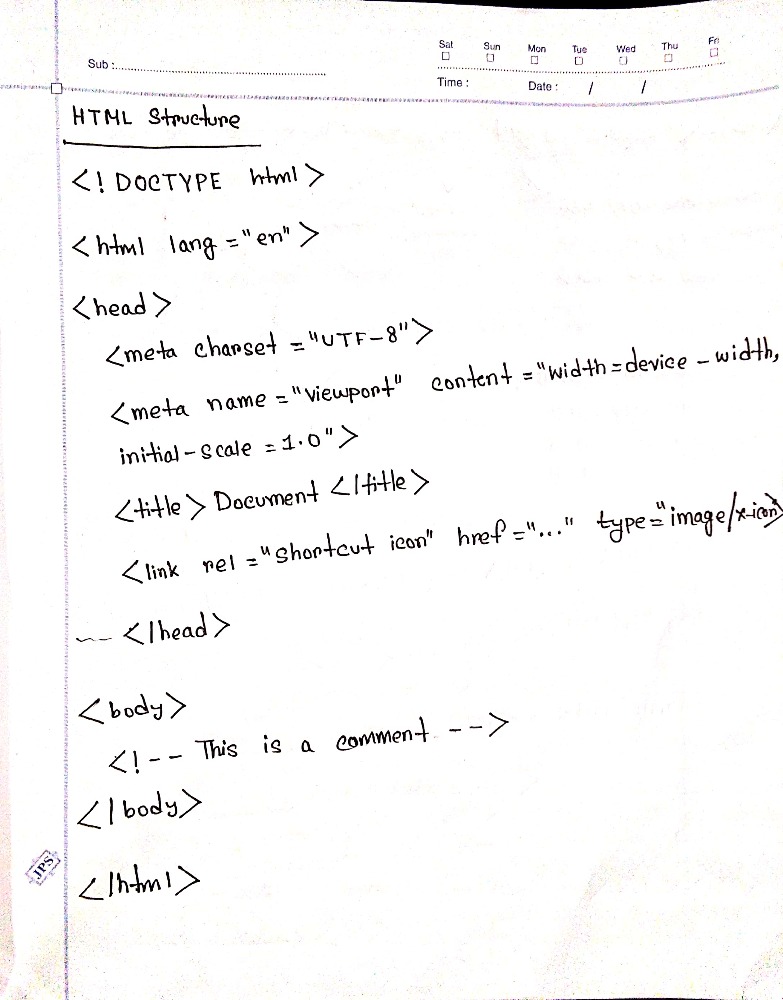 Sat Sun Mon Tue Wed Thu Fri
Sub :
Time : Date : / /
HTML Structure
<! DOCTYPE html>
<html lang ="en">
<head>
<meta charset ="UTF-8">
<meta name ="viewport" content ="width=device-width,
initial-scale =1.0">
<title> Document </title>
<link rel ="shortcut icon" href ="..." type="image/x-icon>
</head>
<body>
<!-- This is a comment -->
</body>
JPS
</html>